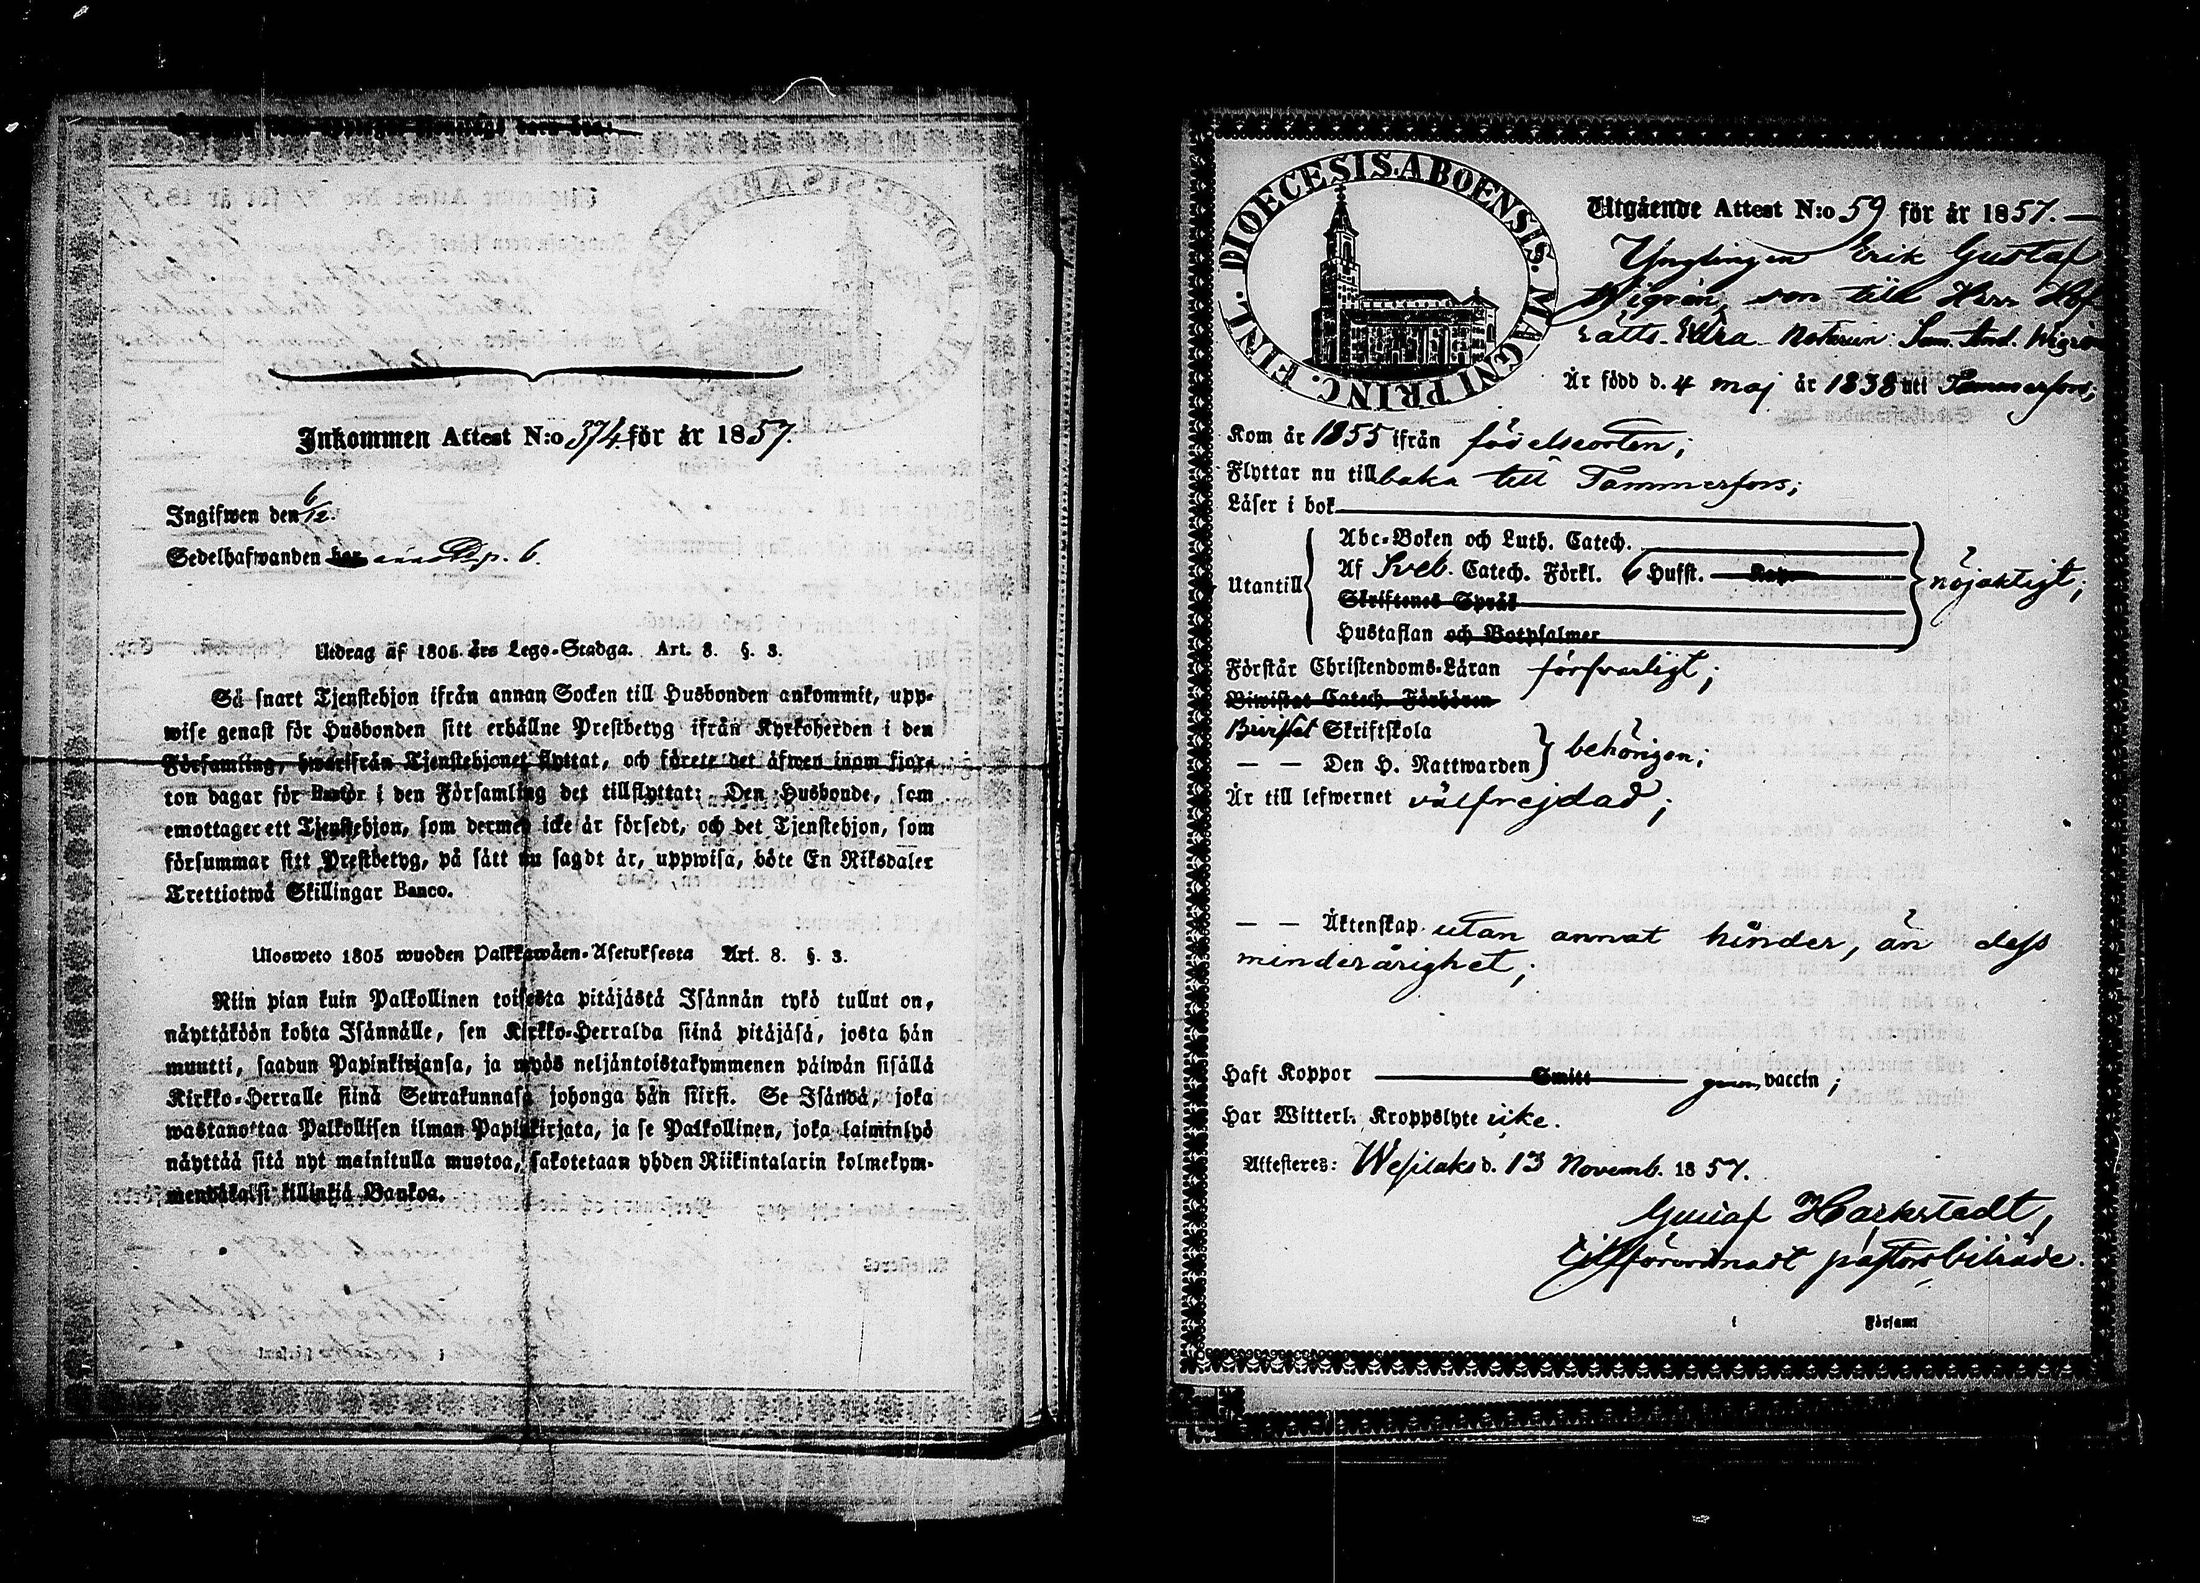 Inkommen Attest N:o 374 för år 1857.
Ingifwen den 6/12.
Sedelhafwanden har p. 6.
Utdrag af 1805 års Lego-Stadga. Art. 8. §. 3.
Så snart Tjenstehjon ifrån annan Socken till Husbonden ankommit, upp-
wise genast för Husbonden sitt erhållne Prestbetyg ifrån Kyrkoherden i den
Församling, hwarifrån Tjenstehjonet flyttat, och förete det äfwen inom fjor-
ton dagar för Pastor i den Församling det tillflyttat: Den Husbonde, som
emottager ett Tjenstehjon, som dermed icke är försedt, och det Tjenstehjon, som
försummar sitt Prestbetyg, på sätt nu sagdt är, uppwisa, böte En Riksdaler
Trettiotwå Skillingar Banco.
Ulosweto 1805 wuoden Palkkawäen-Asetuksesta Art. 8. §. 3.
Niin pian kuin Palkollinen toisesta pitäjästä Isännän tykö tullut on,
näyttäköön kohta Isännälle, sen Kirkko-Herralda siinä pitäjäsä, josta hän
muutti, saadun Papinkirjansa, ja myös neljäntoistakymmenen päiwän sisällä
Kirkko-Herralle siinä Seurakunnasa johonga hän siirsi. Se Isändä, joka
wastanottaa Palkollisen ilman Papinkirjata, ja se Palkollinen, joka laiminlyö
näyttää sitä nyt mainitulla muotoa, sakotetaan yhden Riikintalarin kolmekym-
mendäkaksi killinkiä Bankoa.
DIOECESIS.ABOENSIS.MAGNI PRINC.FINL.
Utgående Attest N:o 59 för år 1857.
Ynglingen Erik Gustaf
Wigren, son till Herr Hof
rätts- Extra Notarien Sam. And. Wigren
Är född d. 4 maj år 1838 uti Tammerfors;
Kom år 1855 ifrån födelseorten;
Flyttar nu tillbaka till Tammerfors;
Läser i bok
Abc-Boken och Luth. Catech.
Utantill Af Sveb. Catech. Förkl. 6 Hufst. Kap. nöjaktigt;
Skriftenes Språk
Hustaflan och Botpsalmer
Förstår Christendoms-Läran försvarligt;
Biwistat Catech. Förhören
Bivistat Skriftskola
— — Den H. Nattwarden behörigen;
Är till lefwernet välfrejdad;
— — Äktenskap utan annat hinder, än dess
minderårighet;
Haft Koppor Smitt genom vaccin;
Har Witterl. Kroppslyte icke.
Attesteres: Wesilaks d. 13 Novemb. 1857.
Gustaf Harkstedt,
Tillförordnadt pastorsbiträde.
i Församl